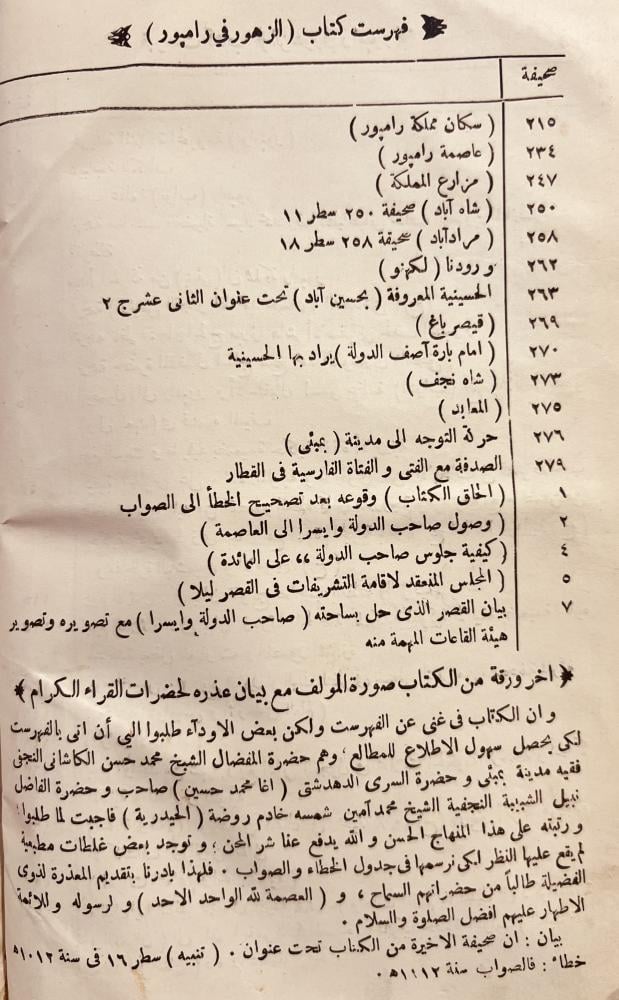 فهرست كتاب ( الزهور في رامپور )
صحيفة
٢١٥ ( سكان مملكة رامپور )
٢٣٤ ( عاصمة رامپور )
٢٤٧ ( مزارع المملكة )
٢٥٠ ( شاه آباد ) صحيفة ٢٥٠ سطر ١١
٢٥٨ ( مرادآباد ) صحيفة ٢٥٨ سطر ١٨
٢٦٢ و رودنا ( لكهنو )
٢٦٣ الحسينية المعروفة ( بحسين آباد ) تحت عنوان الثانى عشرج ٢
٢٦٩ ( قيصر باغ )
٢٧٠ ( امام بارة آصف الدولة ) يراد بها الحسينية
٢٧٣ ( شاه نجف )
٢٧٥ ( المعابد )
٢٧٦ حركة التوجه الى مدينة ( بمبئى )
٢٧٩ الصدفة مع الفتى و الفتاة الفارسية فى القطار
١ ( الحاق الكتاب ) وقوعه بعد تصحيح الخطأ الى الصواب
٢ ( وصول صاحب الدولة وايسرا الى العاصمة )
٤ ( كيفية جلوس صاحب الدولة ،، على المائدة )
٥ ( المجلس المنعقد لاقامة التشريفات فى القصر ليلا )
٧ بيان القصر الذى حل بساحته ( صاحب الدولة وايسرا ) مع تصويره وتصوير
هيئة القاعات المهمة منه
﴿ اخر ورقة من الكتاب صورة المولف مع بيان عذره لحضرات القراء الكرام ﴾
و ان الكتاب فى غنى عن الفهرست ولكن بعض الاودآء طلبوا اليى أن اتى بالفهرست
لكى يحصل سهول الاطلاع للمطالع ، وهم حضرة المفضال الشيخ محمد حسن الكاشانى النجفى
فقيه مدينة بمبئى و حضرة السرى الدهدشتى ( اغا محمد حسين ) صاحب و حضرة الفاضل
نبيل الشيبية النجفية الشيخ محمد آمين شمسه خادم روضة ( الحيدرية ) فاجبت لما طلبوا
و رتبته على هذا المنهاج الحسن و الله يدفع عنا شر المحن ؛ و توجد بعض غلطات مطبعية
لم يقع عليها النظر لكى نرسمها فى جدول الخطاء و الصواب ٠ فلهذا بادرنا بتقديم المعذرة لذوى
الفضيلة طالباً من حضراتهم السماح ، و ( العصمة لله الواحد الاحد ) و لرسوله وللائمة
الاطهار عليهم افضل الصلوة والسلام ٠
بيان : ان صحيفة الاخيرة من الكتاب تحت عنوان ٠ ( تنبيه ) سطر ١٦ فى سنة ١٠١٢ﻫ
خطاء : فالصواب سنة ١١١٢ﻫ ٠